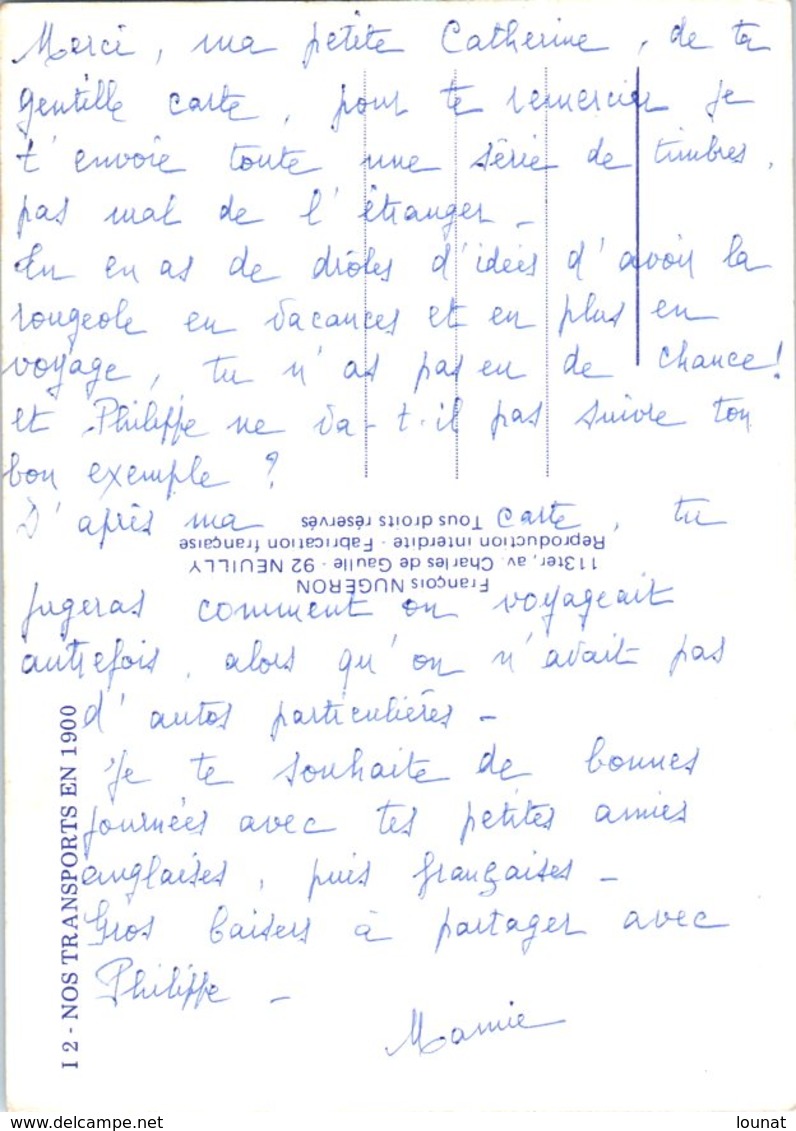 Merci, ma petite Catherine, de ta
gentille carte, pour te remercier je
t'envoie toute une série de timbres,
pas mal de l'étranger -
Tu en as de drôles d'idées d'avoir la
rougeole en vacances et en plus en
voyage, tu n'as pas eu de chance!
et Philippe ne va-t-il pas suivre ton
bon exemple ?
D'après ma carte, tu
jugeras comment on voyageait
autrefois, alors qu'on n'avait pas
d'autos particulières -
Je te souhaite de bonnes
journées avec tes petites amies
anglaises, puis françaises -
Gros baisers à partager avec
Philippe -
Mamie
François NUGERON
113ter, av. Charles de Gaulle - 92 NEUILLY
Reproduction interdite - Fabrication française
Tous droits réservés
I 2 - NOS TRANSPORTS EN 1900
delcampe.net
lounat